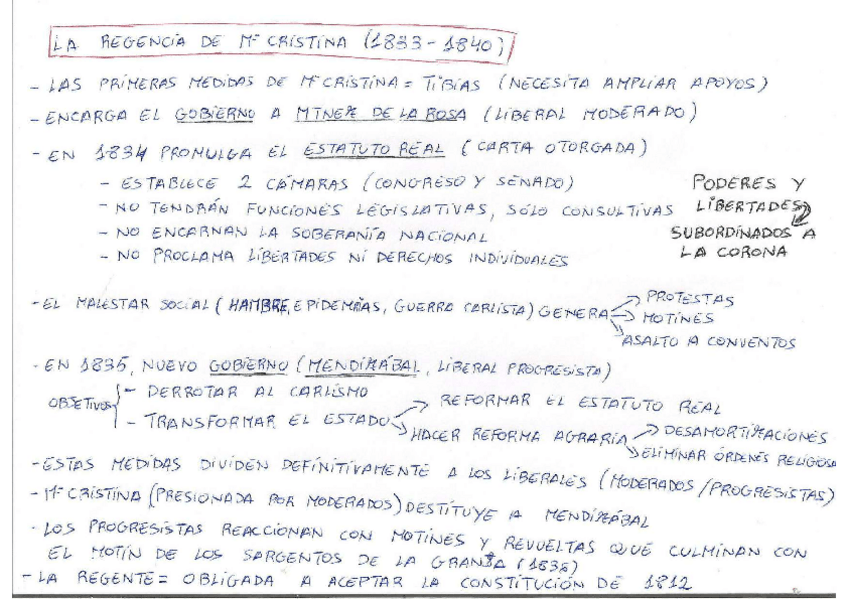 LA REGENCIA DE Mª CRISTINA (1833-1840)
- LAS PRIMERAS MEDIDAS DE Mª CRISTINA = TIBIAS (NECESITA AMPLIAR APOYOS)
- ENCARGA EL GOBIERNO A MTNEZ DE LA ROSA (LIBERAL MODERADO)
- EN 1834 PROMULGA EL ESTATUTO REAL (CARTA OTORGADA)
- ESTABLECE 2 CÁMARAS (CONGRESO Y SENADO)
- NO TENDRÁN FUNCIONES LEGISLATIVAS, SÓLO CONSULTIVAS
- NO ENCARNAN LA SOBERANÍA NACIONAL
- NO PROCLAMA LIBERTADES NI DERECHOS INDIVIDUALES
PODERES Y
LIBERTADES
SUBORDINADOS A
LA CORONA
- EL MALESTAR SOCIAL (HAMBRE, EPIDEMIAS, GUERRA CARLISTA) GENERA
PROTESTAS
MOTINES
ASALTO A CONVENTOS
- EN 1835, NUEVO GOBIERNO (MENDIZÁBAL, LIBERAL PROGRESISTA)
OBJETIVOS
- DERROTAR AL CARLISMO
- TRANSFORMAR EL ESTADO
REFORMAR EL ESTATUTO REAL
HACER REFORMA AGRARIA
DESAMORTIZACIONES
ELIMINAR ÓRDENES RELIGIOSA
- ESTAS MEDIDAS DIVIDEN DEFINITIVAMENTE A LOS LIBERALES (MODERADOS/PROGRESISTAS)
- Mª CRISTINA (PRESIONADA POR MODERADOS) DESTITUYE A MENDIZÁBAL
- LOS PROGRESISTAS REACCIONAN CON MOTINES Y REVUELTAS QUE CULMINAN CON
EL MOTÍN DE LOS SARGENTOS DE LA GRANJA (1836)
- LA REGENTE = OBLIGADA A ACEPTAR LA CONSTITUCIÓN DE 1812